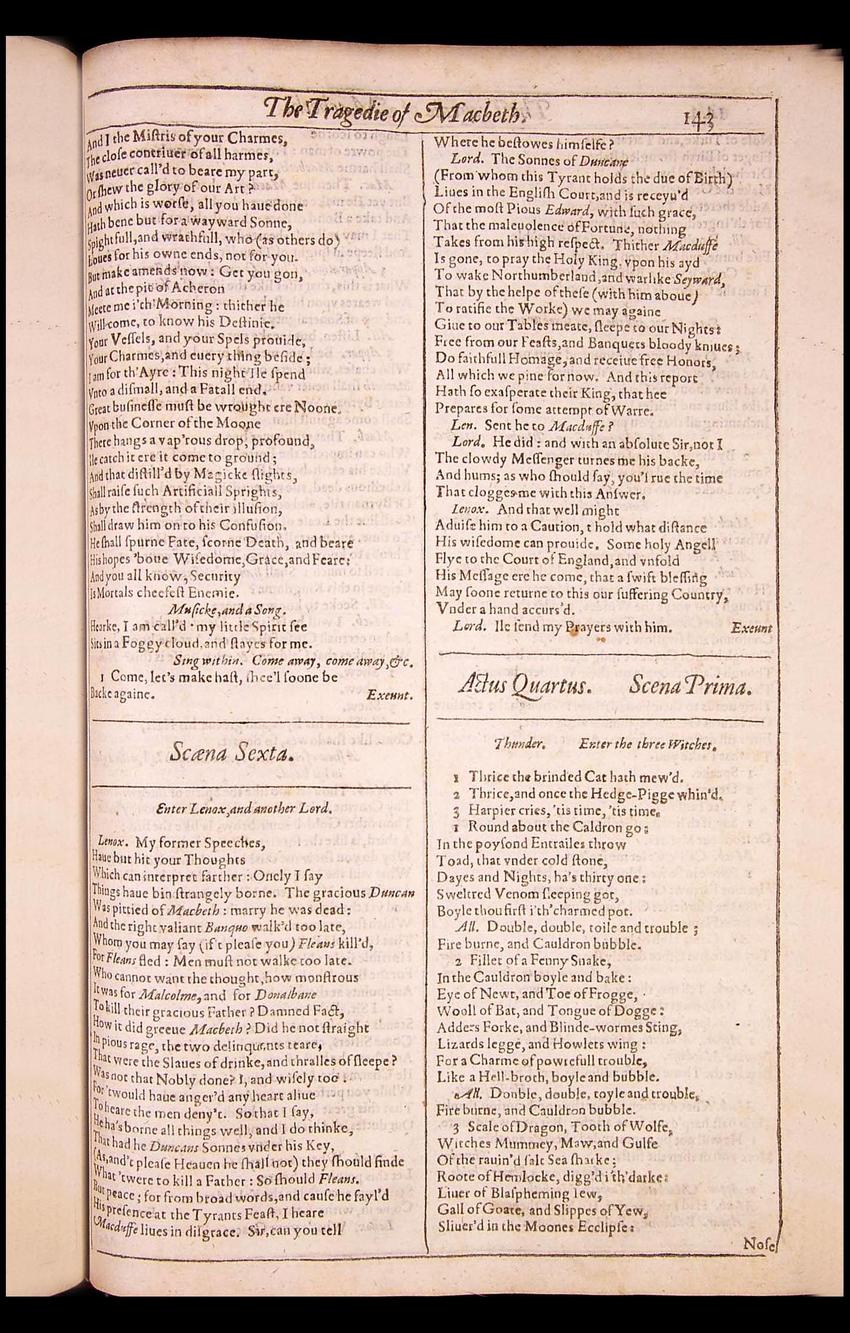 The Tragedie of Macbeth. 143
And I the Miſtris of your Charmes,
The cloſe contriuer of all harmes,
Was neuer call'd to beare my part,
Or ſhew the glory of our Art?
And which is worſe, all you haue done
Hath bene but for a wayward Sonne,
Spightfull, and wrathfull, who (as others do)
Loues for his owne ends, not for you.
But make amends now: Get you gon,
And at the pit of Acheron
Meete me i'th'Morning: thither he
Will come, to know his Deſtinie.
Your Veſſels, and your Spels prouide,
Your Charmes, and euery thing beſide;
I am for th'Ayre: This night Ile ſpend
Vnto a diſmall, and a Fatall end.
Great buſineſſe muſt be wrought ere Noone.
Vpon the Corner of the Moone
There hangs a vap'rous drop, profound,
Ile catch it ere it come to ground;
And that diſtill'd by Magicke ſlights,
Shall raiſe ſuch Artificiall Sprights,
As by the ſtrength of their illuſion,
Shall draw him on to his Confuſion.
He ſhall ſpurne Fate, ſcorne Death, and beare
His hopes 'boue Wiſedome, Grace, and Feare:
And you all know, Security
Is Mortals cheefeſt Enemie.
Muſicke, and a Song.
Hearke, I am call'd: my little Spirit ſee
Sits in a Foggy cloud, and ſtayes for me.
Sing within. Come away, come away, &c.
1 Come, let's make haſt, ſhee'l ſoone be
Backe againe. Exeunt.
Scæna Sexta.
Enter Lenox, and another Lord.
Lenox. My former Speeches,
Haue but hit your Thoughts
Which can interpret farther: Onely I ſay
Things haue bin ſtrangely borne. The gracious Duncan
Was pittied of Macbeth: marry he was dead:
And the right valiant Banquo walk'd too late,
Whom you may ſay (if't pleaſe you) Fleans kill'd,
For Fleans fled: Men muſt not walke too late.
Who cannot want the thought, how monſtrous
It was for Malcolme, and for Donalbane
To kill their gracious Father? Damned Fact,
How it did greeue Macbeth? Did he not ſtraight
In pious rage, the two delinquents teare,
That were the Slaues of drinke, and thralles of ſleepe?
Was not that Nobly done? I, and wiſely too:
For 'twould haue anger'd any heart aliue
To heare the men deny't. So that I ſay,
He ha's borne all things well, and I do thinke,
That had he Duncans Sonnes vnder his Key,
(As, and't pleaſe Heauen he ſhall not) they ſhould finde
What 'twere to kill a Father: So ſhould Fleans.
But peace; for from broad words, and cauſe he fayl'd
His preſence at the Tyrants Feaſt, I heare
Macduffe liues in diſgrace. Sir, can you tell
Where he beſtowes himſelfe?
Lord. The Sonnes of Duncane
(From whom this Tyrant holds the due of Birth)
Liues in the Engliſh Court, and is receyu'd
Of the moſt Pious Edward, with ſuch grace,
That the maleuolence of Fortune, nothing
Takes from his high reſpect. Thither Macduffe
Is gone, to pray the Holy King, vpon his ayd
To wake Northumberland, and warlike Seyward,
That by the helpe of theſe (with him aboue)
To ratifie the Worke) we may againe
Giue to our Tables meate, ſleepe to our Nights:
Free from our Feaſts, and Banquets bloody kniues;
Do faithfull Homage, and receiue free Honors,
All which we pine for now. And this report
Hath ſo exaſperate their King, that hee
Prepares for ſome attempt of Warre.
Len. Sent he to Macduffe?
Lord. He did: and with an abſolute Sir, not I
The clowdy Meſſenger turnes me his backe,
And hums; as who ſhould ſay, you'l rue the time
That clogges me with this Anſwer.
Lenox. And that well might
Aduiſe him to a Caution, t hold what diſtance
His wiſedome can prouide. Some holy Angell
Flye to the Court of England, and vnfold
His Meſſage ere he come, that a ſwift bleſſing
May ſoone returne to this our ſuffering Country,
Vnder a hand accurs'd.
Lord. Ile ſend my Prayers with him. Exeunt
Actus Quartus. Scena Prima.
Thunder. Enter the three Witches.
1 Thrice the brinded Cat hath mew'd.
2 Thrice, and once the Hedge-Pigge whin'd.
3 Harpier cries, 'tis time, 'tis time.
1 Round about the Caldron go:
In the poyſond Entrailes throw
Toad, that vnder cold ſtone,
Dayes and Nights, ha's thirty one:
Sweltred Venom ſleeping got,
Boyle thou firſt i'th'charmed pot.
All. Double, double, toile and trouble;
Fire burne, and Cauldron bubble.
2 Fillet of a Fenny Snake,
In the Cauldron boyle and bake:
Eye of Newt, and Toe of Frogge,
Wooll of Bat, and Tongue of Dogge:
Adders Forke, and Blinde-wormes Sting,
Lizards legge, and Howlets wing:
For a Charme of powrefull trouble,
Like a Hell-broth, boyle and bubble.
All. Double, double, toyle and trouble,
Fire burne, and Cauldron bubble.
3 Scale of Dragon, Tooth of Wolfe,
Witches Mummey, Maw, and Gulfe
Of the rauin'd ſalt Sea ſharke:
Roote of Hemlocke, digg'd i'th'darke:
Liuer of Blaſpheming Iew,
Gall of Goate, and Slippes of Yew,
Sliuer'd in the Moones Ecclipſe:
Noſe